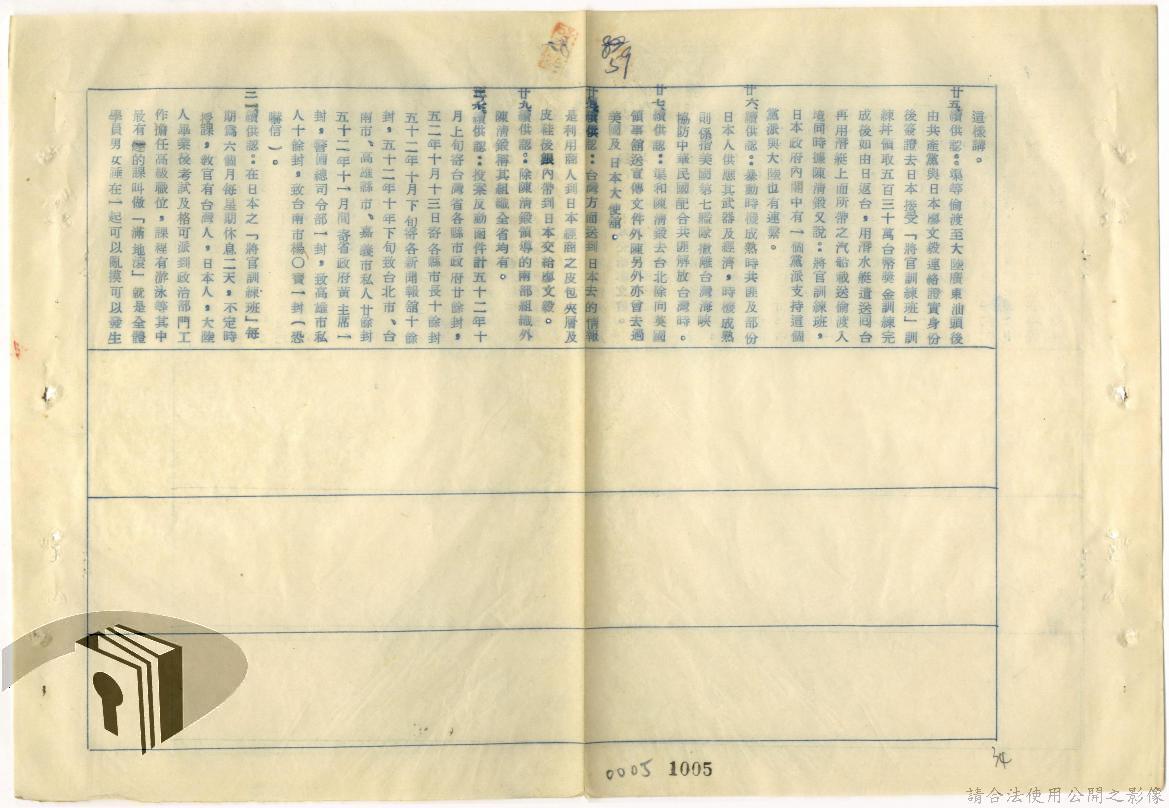 這樣講。
廿五、續供認：渠等偷渡至大陸廣東汕頭後
由共產黨與日本廖文毅連絡證實身份
後簽證去日本接受「將官訓練班」訓
練幷領取五百三十萬台幣獎金訓練完
成後如由日返台，用潛水艇遣送回台
再用潛艇上面所帶之汽船載送偷渡人
境同時據陳清鍛又說：將官訓練班，
日本政府內閣中有一個黨派支持這個
黨派與大陸也有連繫。
廿六、續供認：暴動時機成熟時共匪及部份
日本人供應其武器及經濟，時機成熟
則係指美國第七艦隊撤離台灣海峽
協防中華民國配合共匪解放台灣時。
廿七、續供認：渠和陳清鍛去台北除向英國
領事館送宣傳文件外陳另外亦曾去過
美國及日本大使舘。
續供認：台灣方面送到日本去的情報
是利用商人到日本經商之皮包夾層及
皮鞋後跟內帶到日本交給廖文毅。
廿九、續供認：除陳清鍛領導的南部組織外
陳清鍛稱其組織全省均有。
續供認：投案反動函件計五十二年十
月上旬寄台灣省各縣市政府廿餘封，
五二年十月十三日寄各縣市長十餘封
五十二年十月下旬寄各新聞報舘十餘
封，五十二年十年下旬致台北市、台
南市、高雄縣市、嘉義市私人廿餘封
五十二年十一月間寄省政府黃主席一
封，警備總司令部一封，致高雄市私
人十餘封，致台南市楊〇寶一封（恐
嚇信）。
續供認：在日本之「將官訓練班」每
期為六個月每星期休息二天，不定時
授課，教官有台灣人，日本人，大陸
人畢業後考試及格可派到政治部門工
作擔任高級職位，課程有游泳等其中
最有的課叫做「滿地滾」就是全體
學員男女睡在一起可以亂摸可以發生
59
0005 1005
34
請合法使用公開之影像